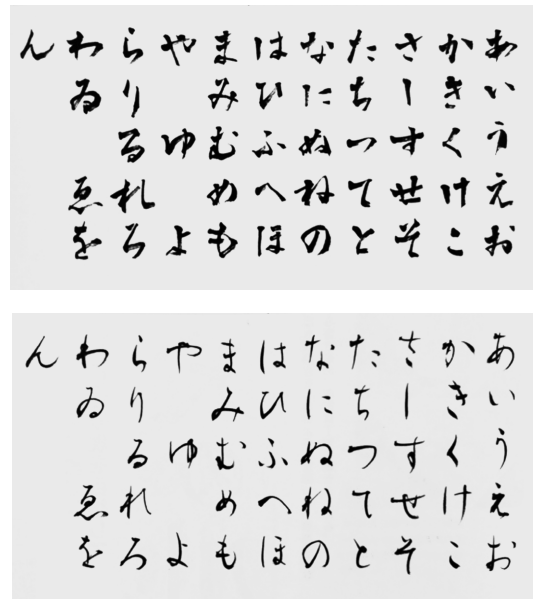 あいうえお
かきくけこ
さしすせそ
たちつてと
なにぬねの
はひふへほ
まみむめも
やゆよ
らりるれろ
わゐゑを
ん
あいうえお
かきくけこ
さしすせそ
たちつてと
なにぬねの
はひふへほ
まみむめも
やゆよ
らりるれろ
わゐゑを
ん